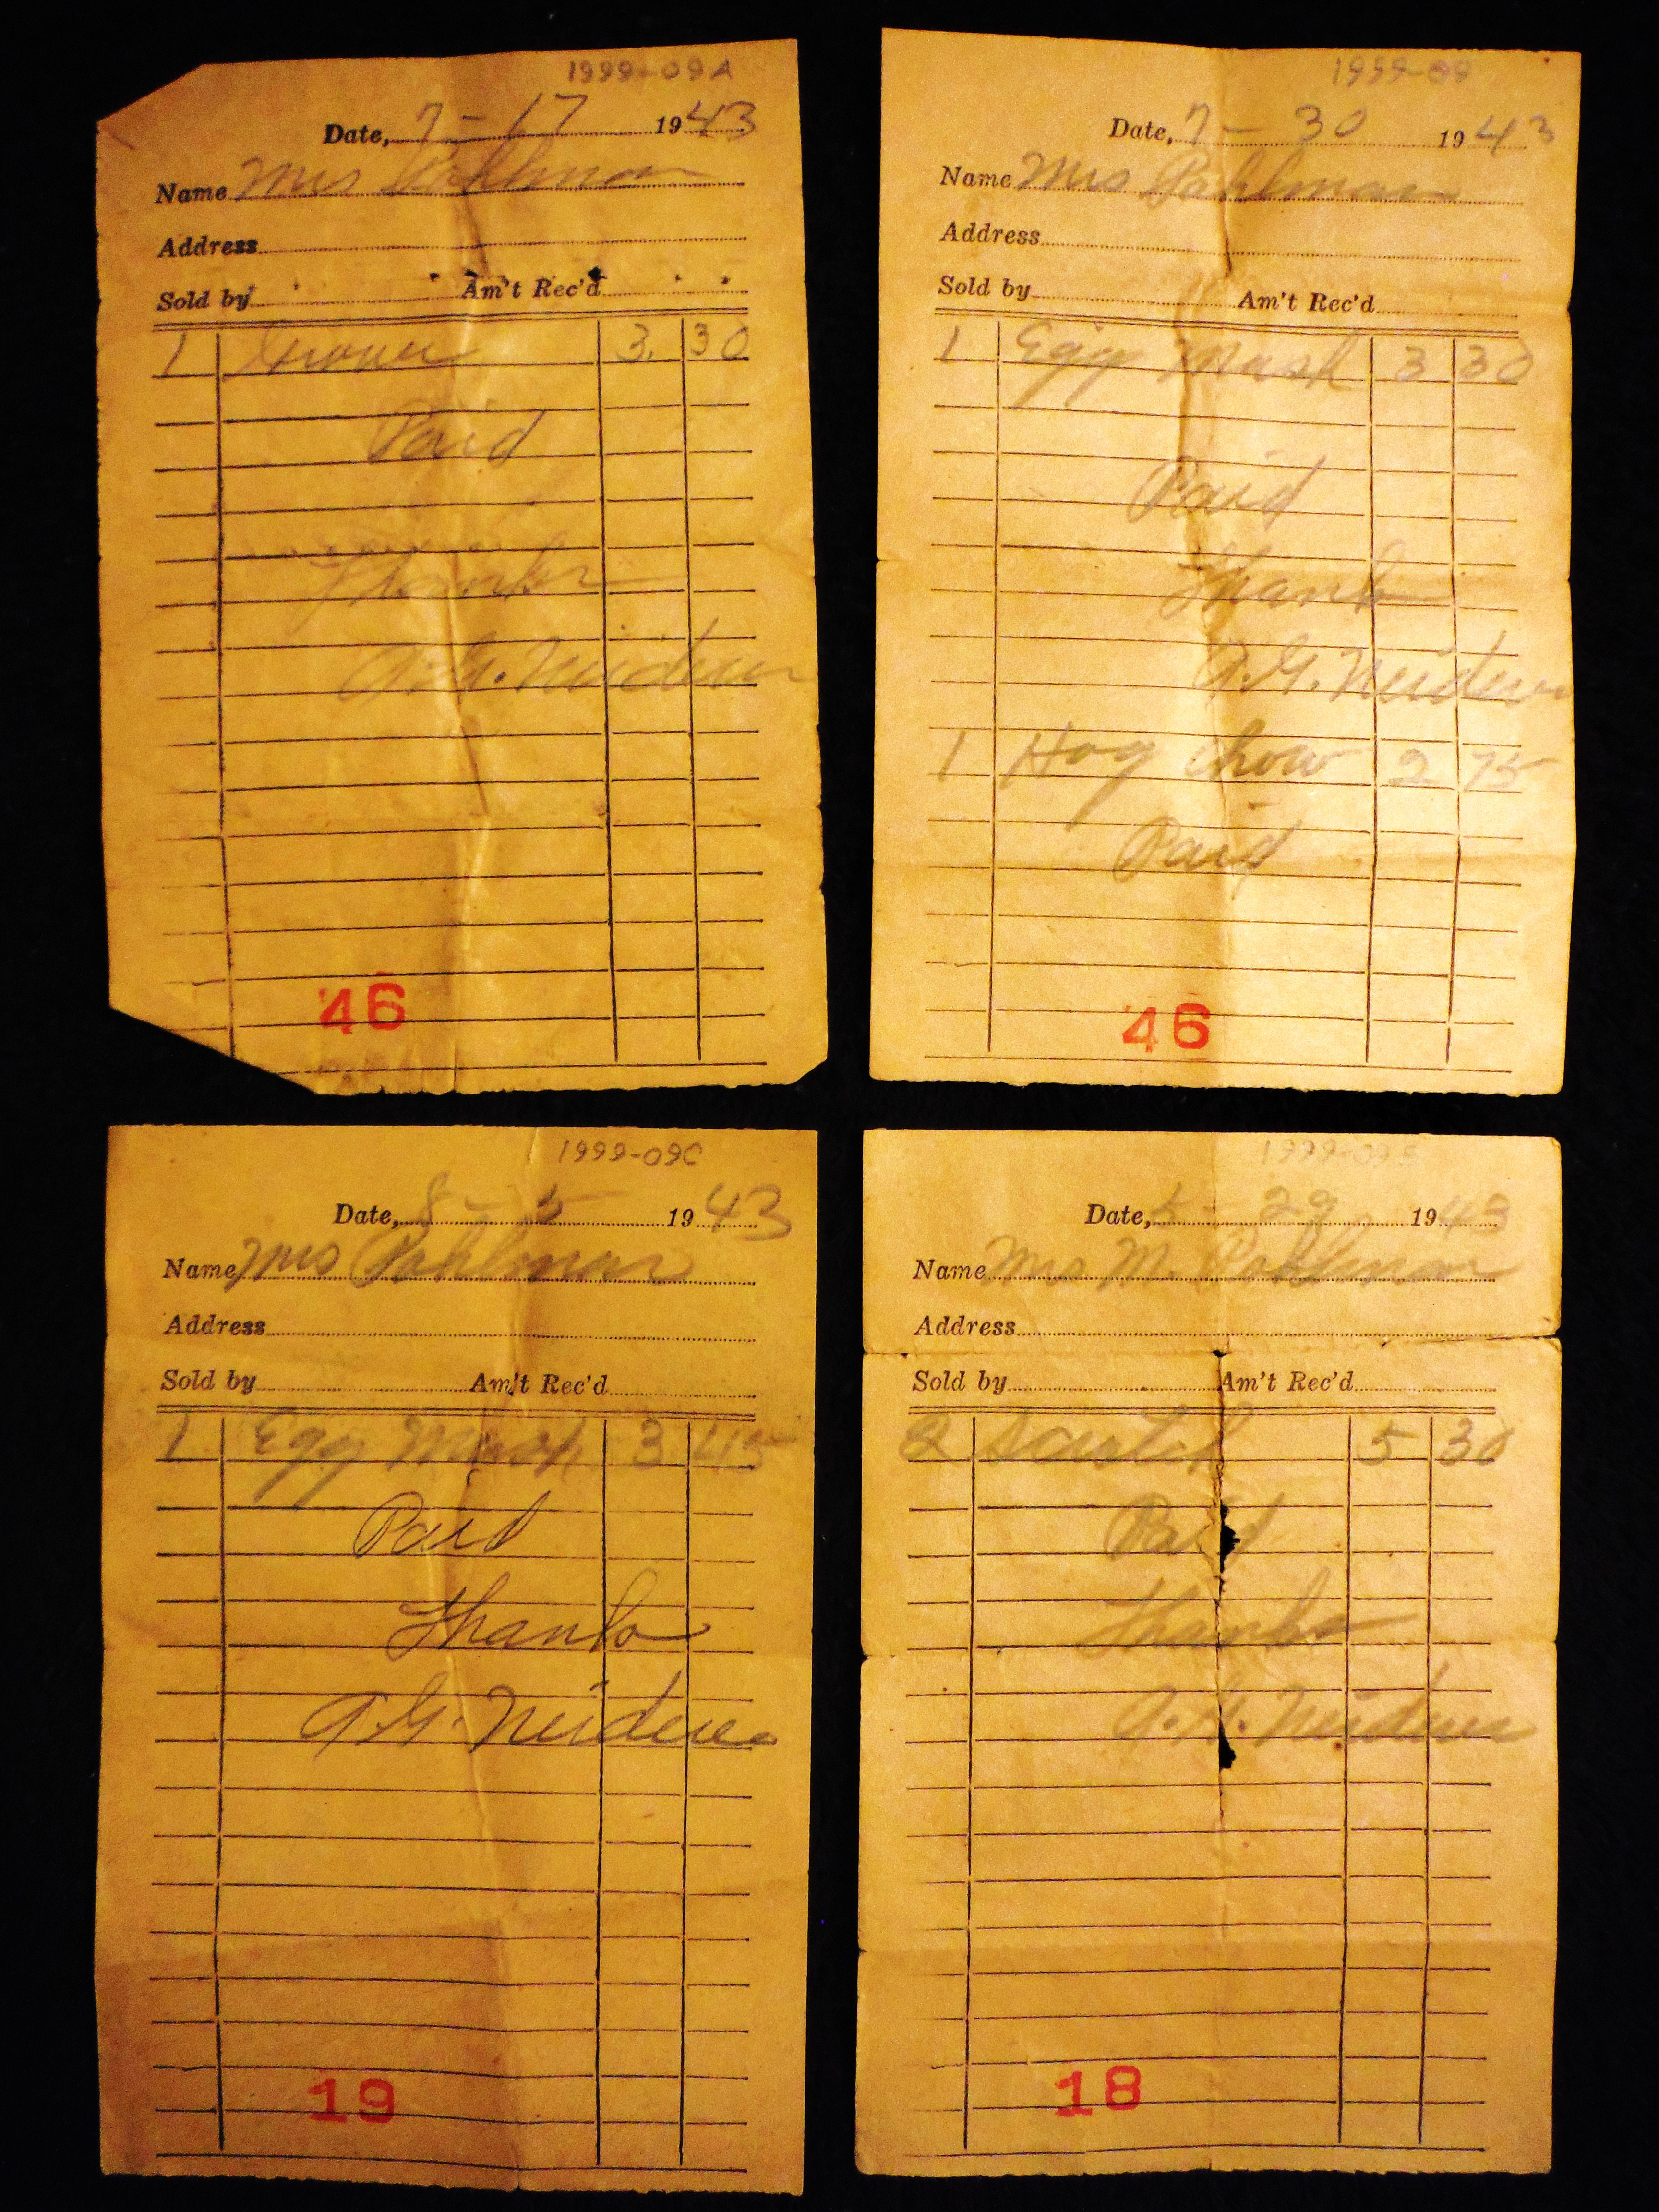 1999-09A
Date, 7-17 1943
Name Mrs Pohlman
Address
Sold by Am't Rec'd
1 Grower 3. 30
Paid
Thanks
A.G. Neideen
46
1999-09
Date, 7-30 1943
Name Mrs Pohlman
Address
Sold by Am't Rec'd
1 Egg Mash 3 30
Paid
Thanks
A.G. Neideen
1 Hog Chow 2 75
Paid
46
1999-09C
Date, 8-5 1943
Name Mrs Pohlman
Address
Sold by Am't Rec'd
1 Egg Mash 3 45
Paid
Thanks
A.G. Neideen
19
Date, 5-29 1943
Name Mrs M. Pohlman
Address
Sold by Am't Rec'd
2 Scratch 5 30
Paid
Thanks
A.G. Neideen
18